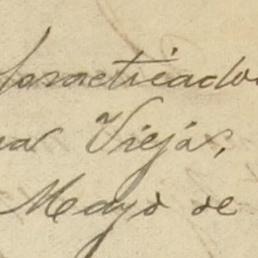 practicado
na Vieja,
Mayo de